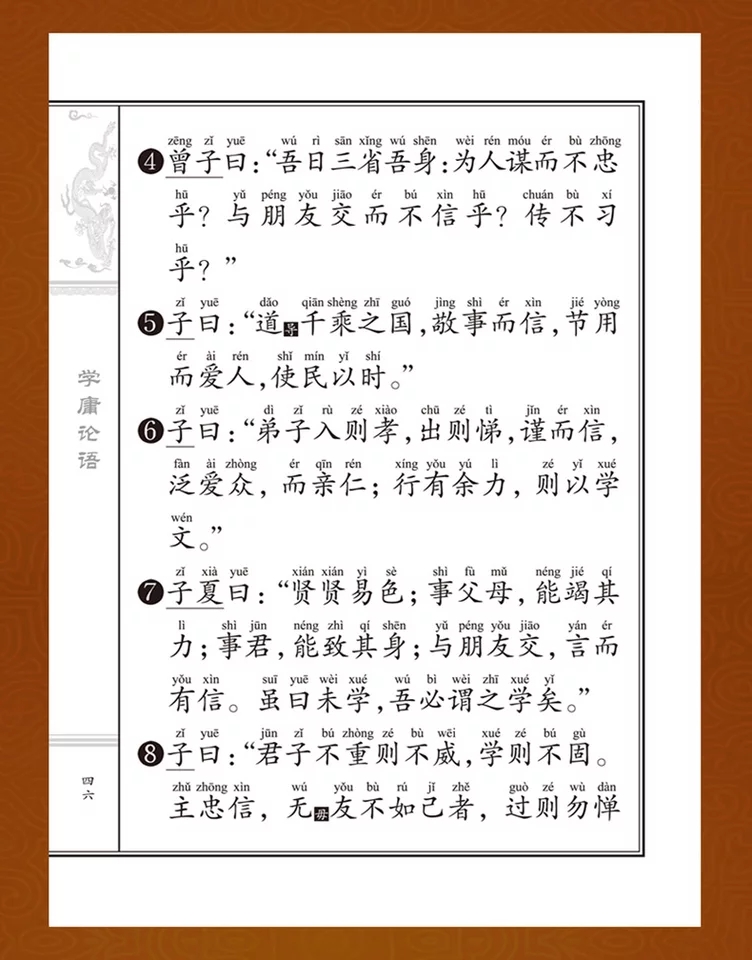 zēng zǐ yuē wú rì sān xǐng wú shēn wèi rén móu ér bù zhōng
❹曾子曰：“吾日三省吾身：为人谋而不忠
hū yǔ péng yǒu jiāo ér bú xìn hū chuán bù xí
乎？与朋友交而不信乎？传不习
hū
乎？”
zǐ yuē dǎo qiān shèng zhī guó jìng shì ér xìn jié yòng
❺子曰：“道导千乘之国，敬事而信，节用
ér ài rén shǐ mín yǐ shí
而爱人，使民以时。”
zǐ yuē dì zǐ rù zé xiào chū zé tì jǐn ér xìn
❻子曰：“弟子入则孝，出则悌，谨而信，
fàn ài zhòng ér qīn rén xíng yǒu yú lì zé yǐ xué
泛爱众，而亲仁；行有余力，则以学
wén
文。”
zǐ xià yuē xián xián yì sè shì fù mǔ néng jié qí
❼子夏曰：“贤贤易色；事父母，能竭其
lì shì jūn néng zhì qí shēn yǔ péng yǒu jiāo yán ér
力；事君，能致其身；与朋友交，言而
yǒu xìn suī yuē wèi xué wú bì wèi zhī xué yǐ
有信。虽曰未学，吾必谓之学矣。”
zǐ yuē jūn zǐ bú zhòng zé bù wēi xué zé bú gù
❽子曰：“君子不重则不威，学则不固。
zhǔ zhōng xìn wú yǒu bù rú jǐ zhě guò zé wù dàn
主忠信，无毋友不如己者，过则勿惮
学庸论语
四六